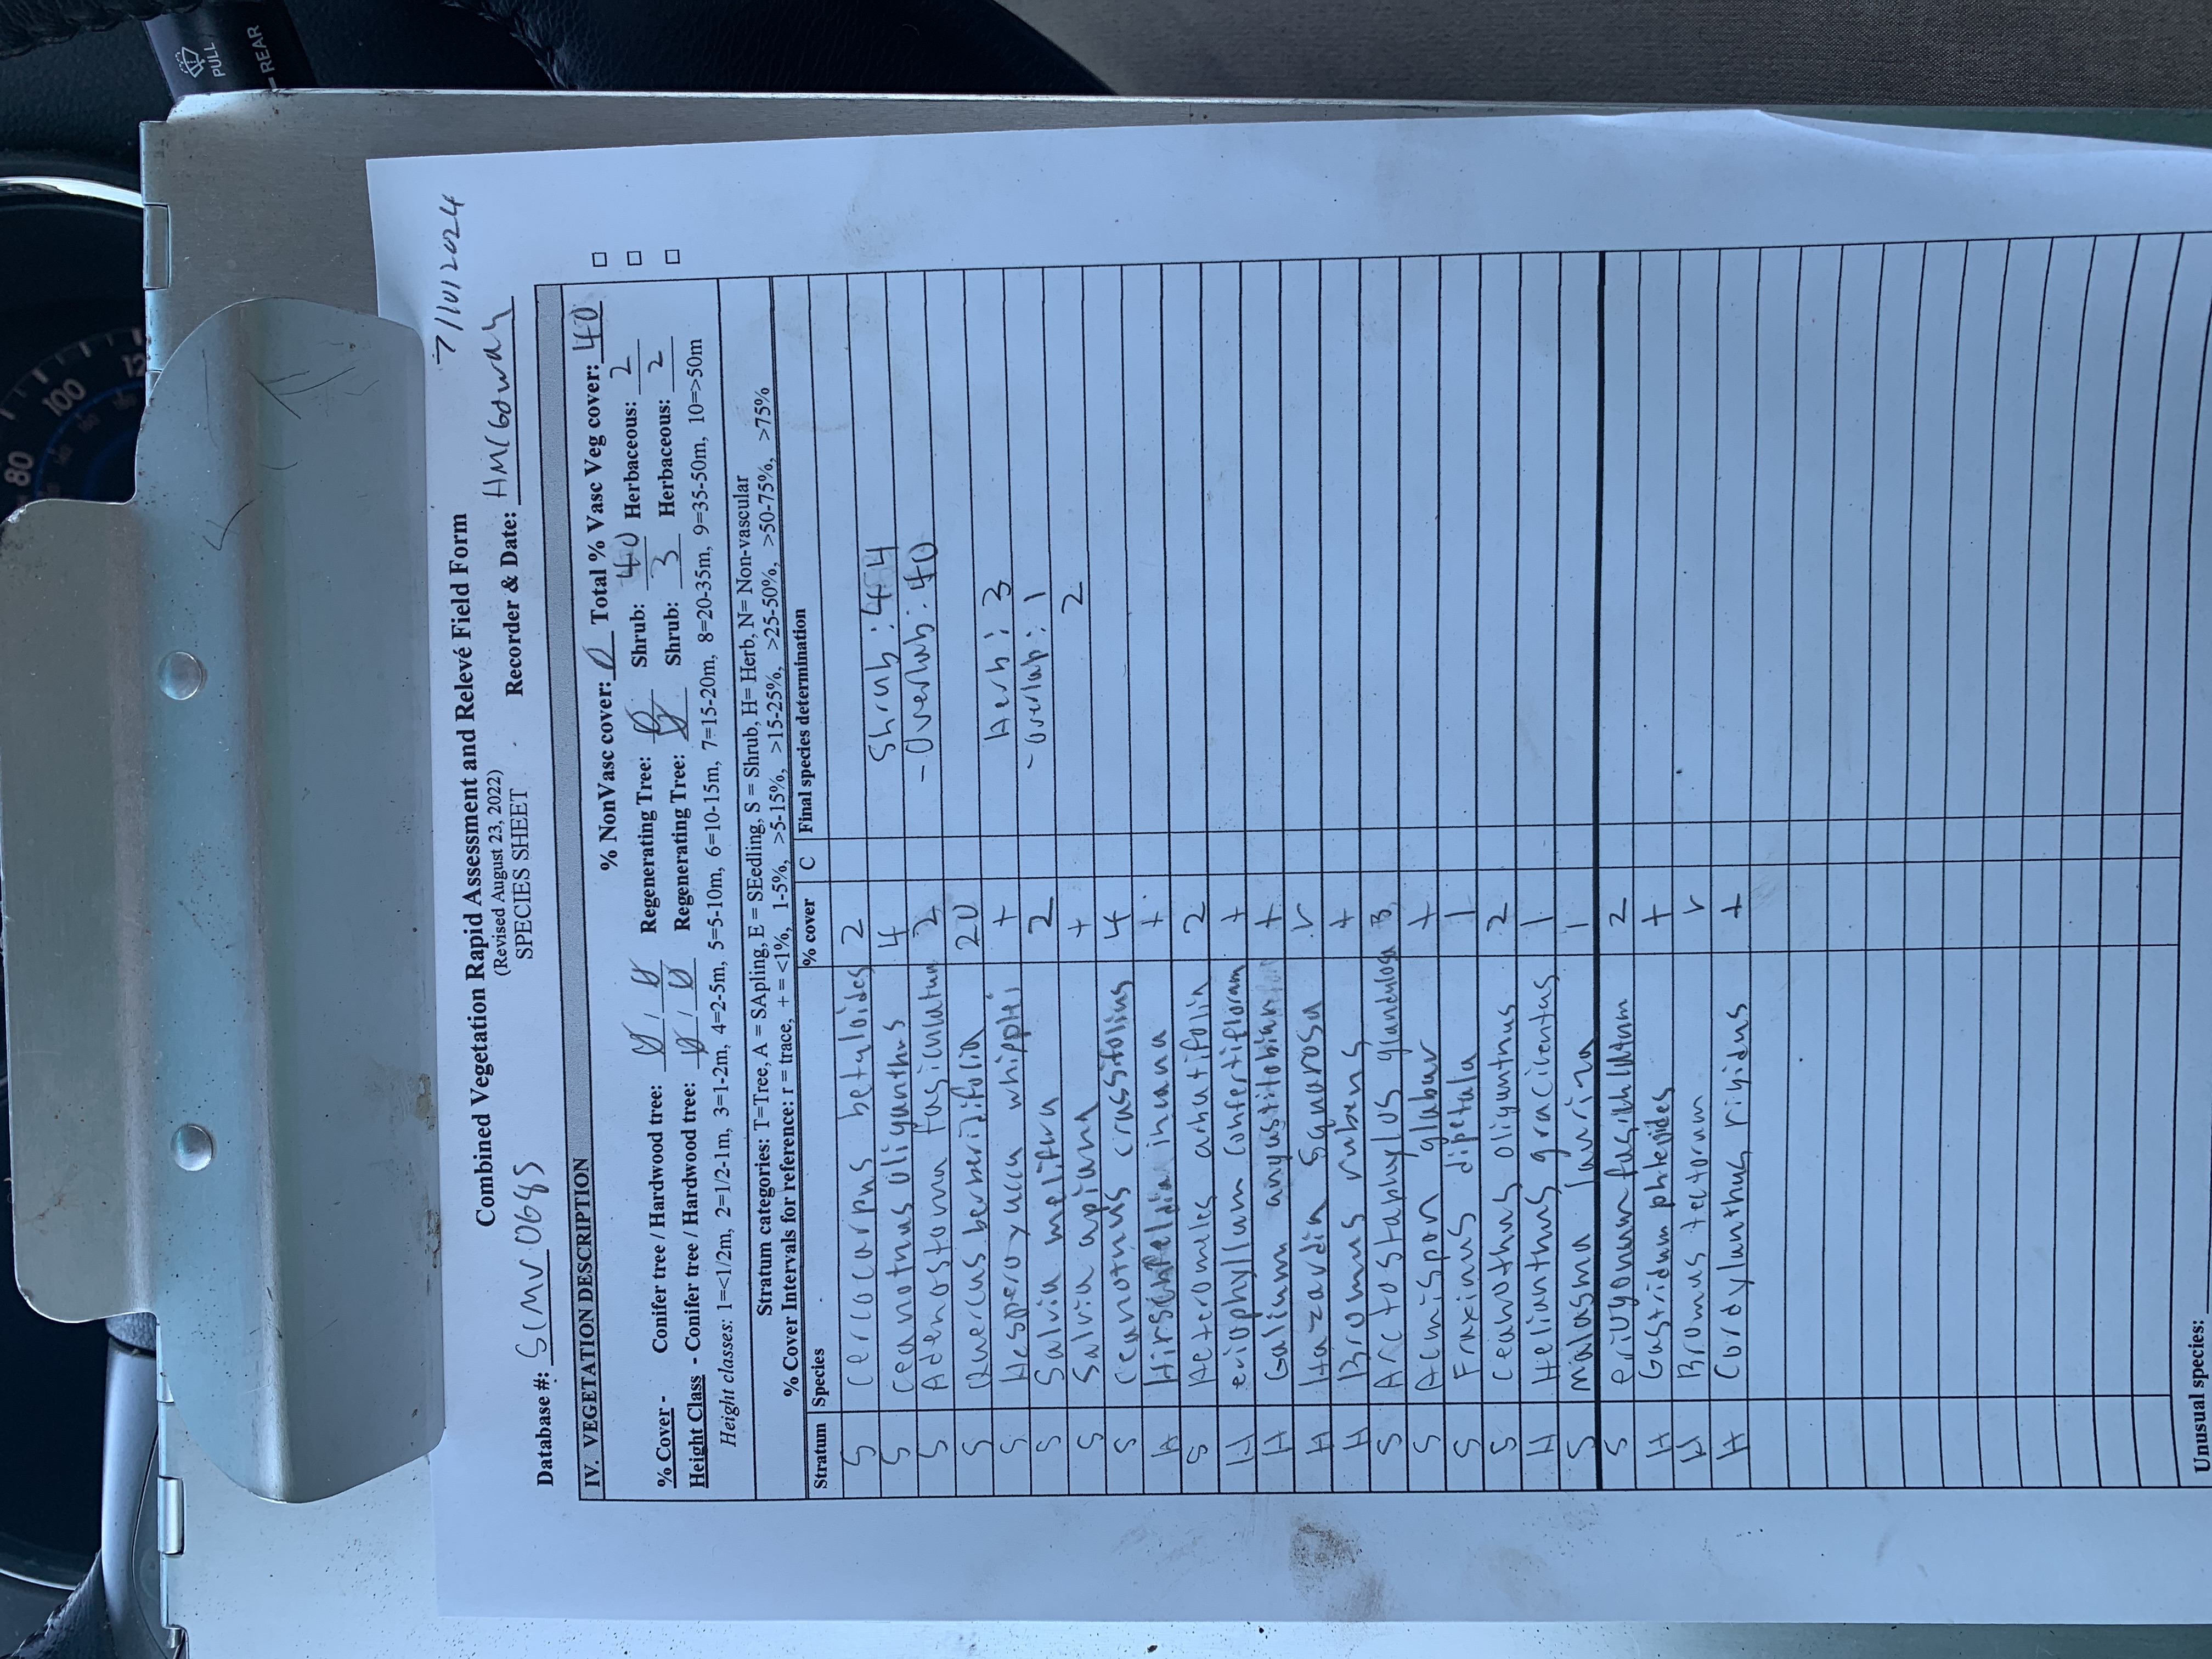 PULL
REAR
80
100
12
7/10/2024
Combined Vegetation Rapid Assessment and Relevé Field Form
(Revised August 23, 2022)
SPECIES SHEET
Database #: SCMV 0G685
Recorder & Date: HMcGowan
IV. VEGETATION DESCRIPTION
% NonVasc cover: 0 Total % Vasc Veg cover: 40
% Cover - Conifer tree / Hardwood tree: 0 / 0 Regenerating Tree: 0 Shrub: 40 Herbaceous: 2
Height Class - Conifer tree / Hardwood tree: 0 / 0 Regenerating Tree: 0 Shrub: 3 Herbaceous: 2
Height classes: 1=<1/2m, 2=1/2-1m, 3=1-2m, 4=2-5m, 5=5-10m, 6=10-15m, 7=15-20m, 8=20-35m, 9=35-50m, 10=>50m
Stratum categories: T=Tree, A = SApling, E = SEedling, S = Shrub, H= Herb, N= Non-vascular
% Cover Intervals for reference: r = trace, + = <1%, 1-5%, >5-15%, >15-25%, >25-50%, >50-75%, >75%
Stratum Species % cover C Final species determination
S Cercocarpus betuloides 2
S Ceanothus oliganthus 4 Shrub: 44
S Adenostoma fasiculatum 2 - Overlab: 40
S Quercus berberidifolia 20
S Hesperoyucca whipplei + Herb: 3
S Salvia melifera 2 - overlap: 1
S Salvia apiana + 2
S Ceanothus crassifolius 4
H Hirschfeldia incana +
S Heteromeles arbutifolia 2
H eriophyllum confertifloram +
H Galium angustifolium +
H Hazardia squarosa r
H Bromus rubens +
S Arctostaphylos glandulosa 3
S Acmispon glabur +
S Fraxinus dipetala 1
S Ceanothus oliganthus 2
H Helianthus gracilentus 1
S malosma laurina 1
S eriogonum fasiculatum 2
H Gastridum phleoides +
H Bromus tectorum r
H Cordylanthus rigidus +
Unusual species: